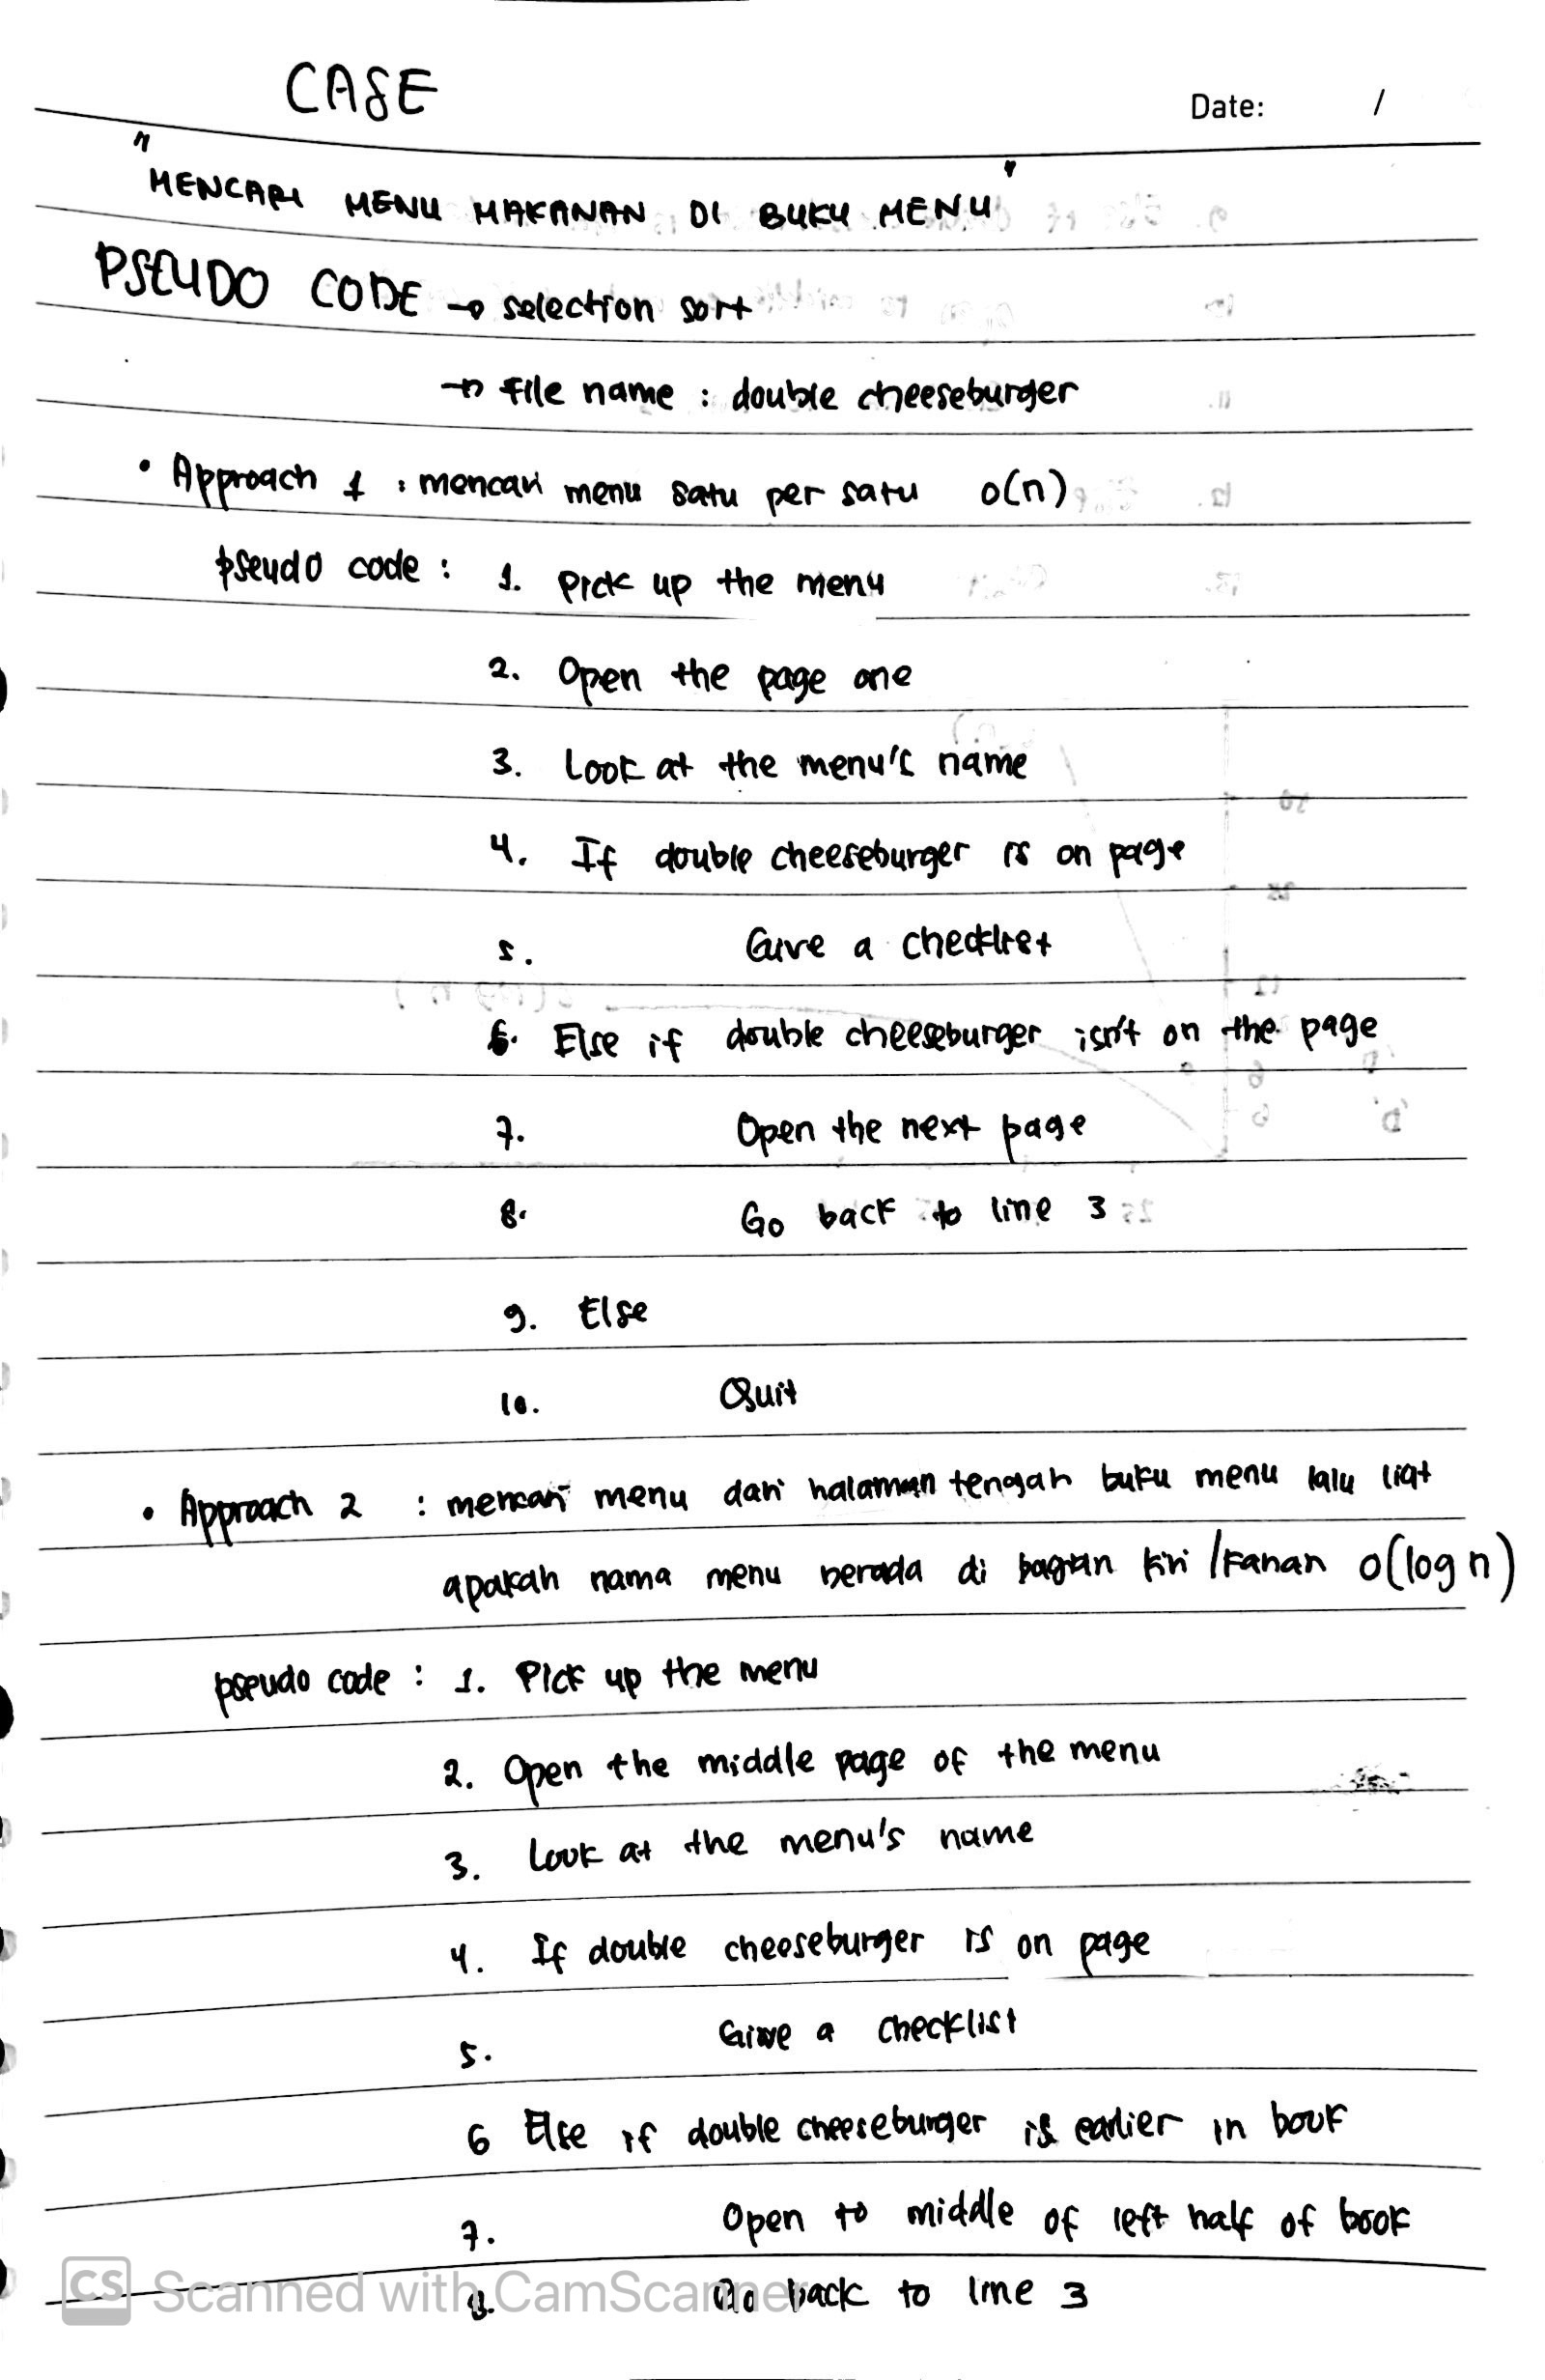 CASE
Date: /
"MENCARI MENU MAKANAN DI BUKU MENU"
PSEUDO CODE → selection sort
→ File name : double cheeseburger
• Approach 1 : mencari menu satu per satu O(n)
pseudo code : 1. Pick up the menu
2. Open the page one
3. Look at the menu's name
4. If double cheeseburger is on page
5. Give a checklist
6. Else if double cheeseburger isn't on the page
7. Open the next page
8. Go back to line 3
9. Else
10. Quit
• Approach 2 : mencari menu dari halaman tengah buku menu lalu liat
apakah nama menu berada di bagian kiri/kanan O(log n)
pseudo code : 1. Pick up the menu
2. Open the middle page of the menu
3. Look at the menu's name
4. If double cheeseburger is on page
5. Give a checklist
6 Else if double cheeseburger is earlier in book
7. Open to middle of left half of book
8. Go back to line 3
CS Scanned with CamScanner